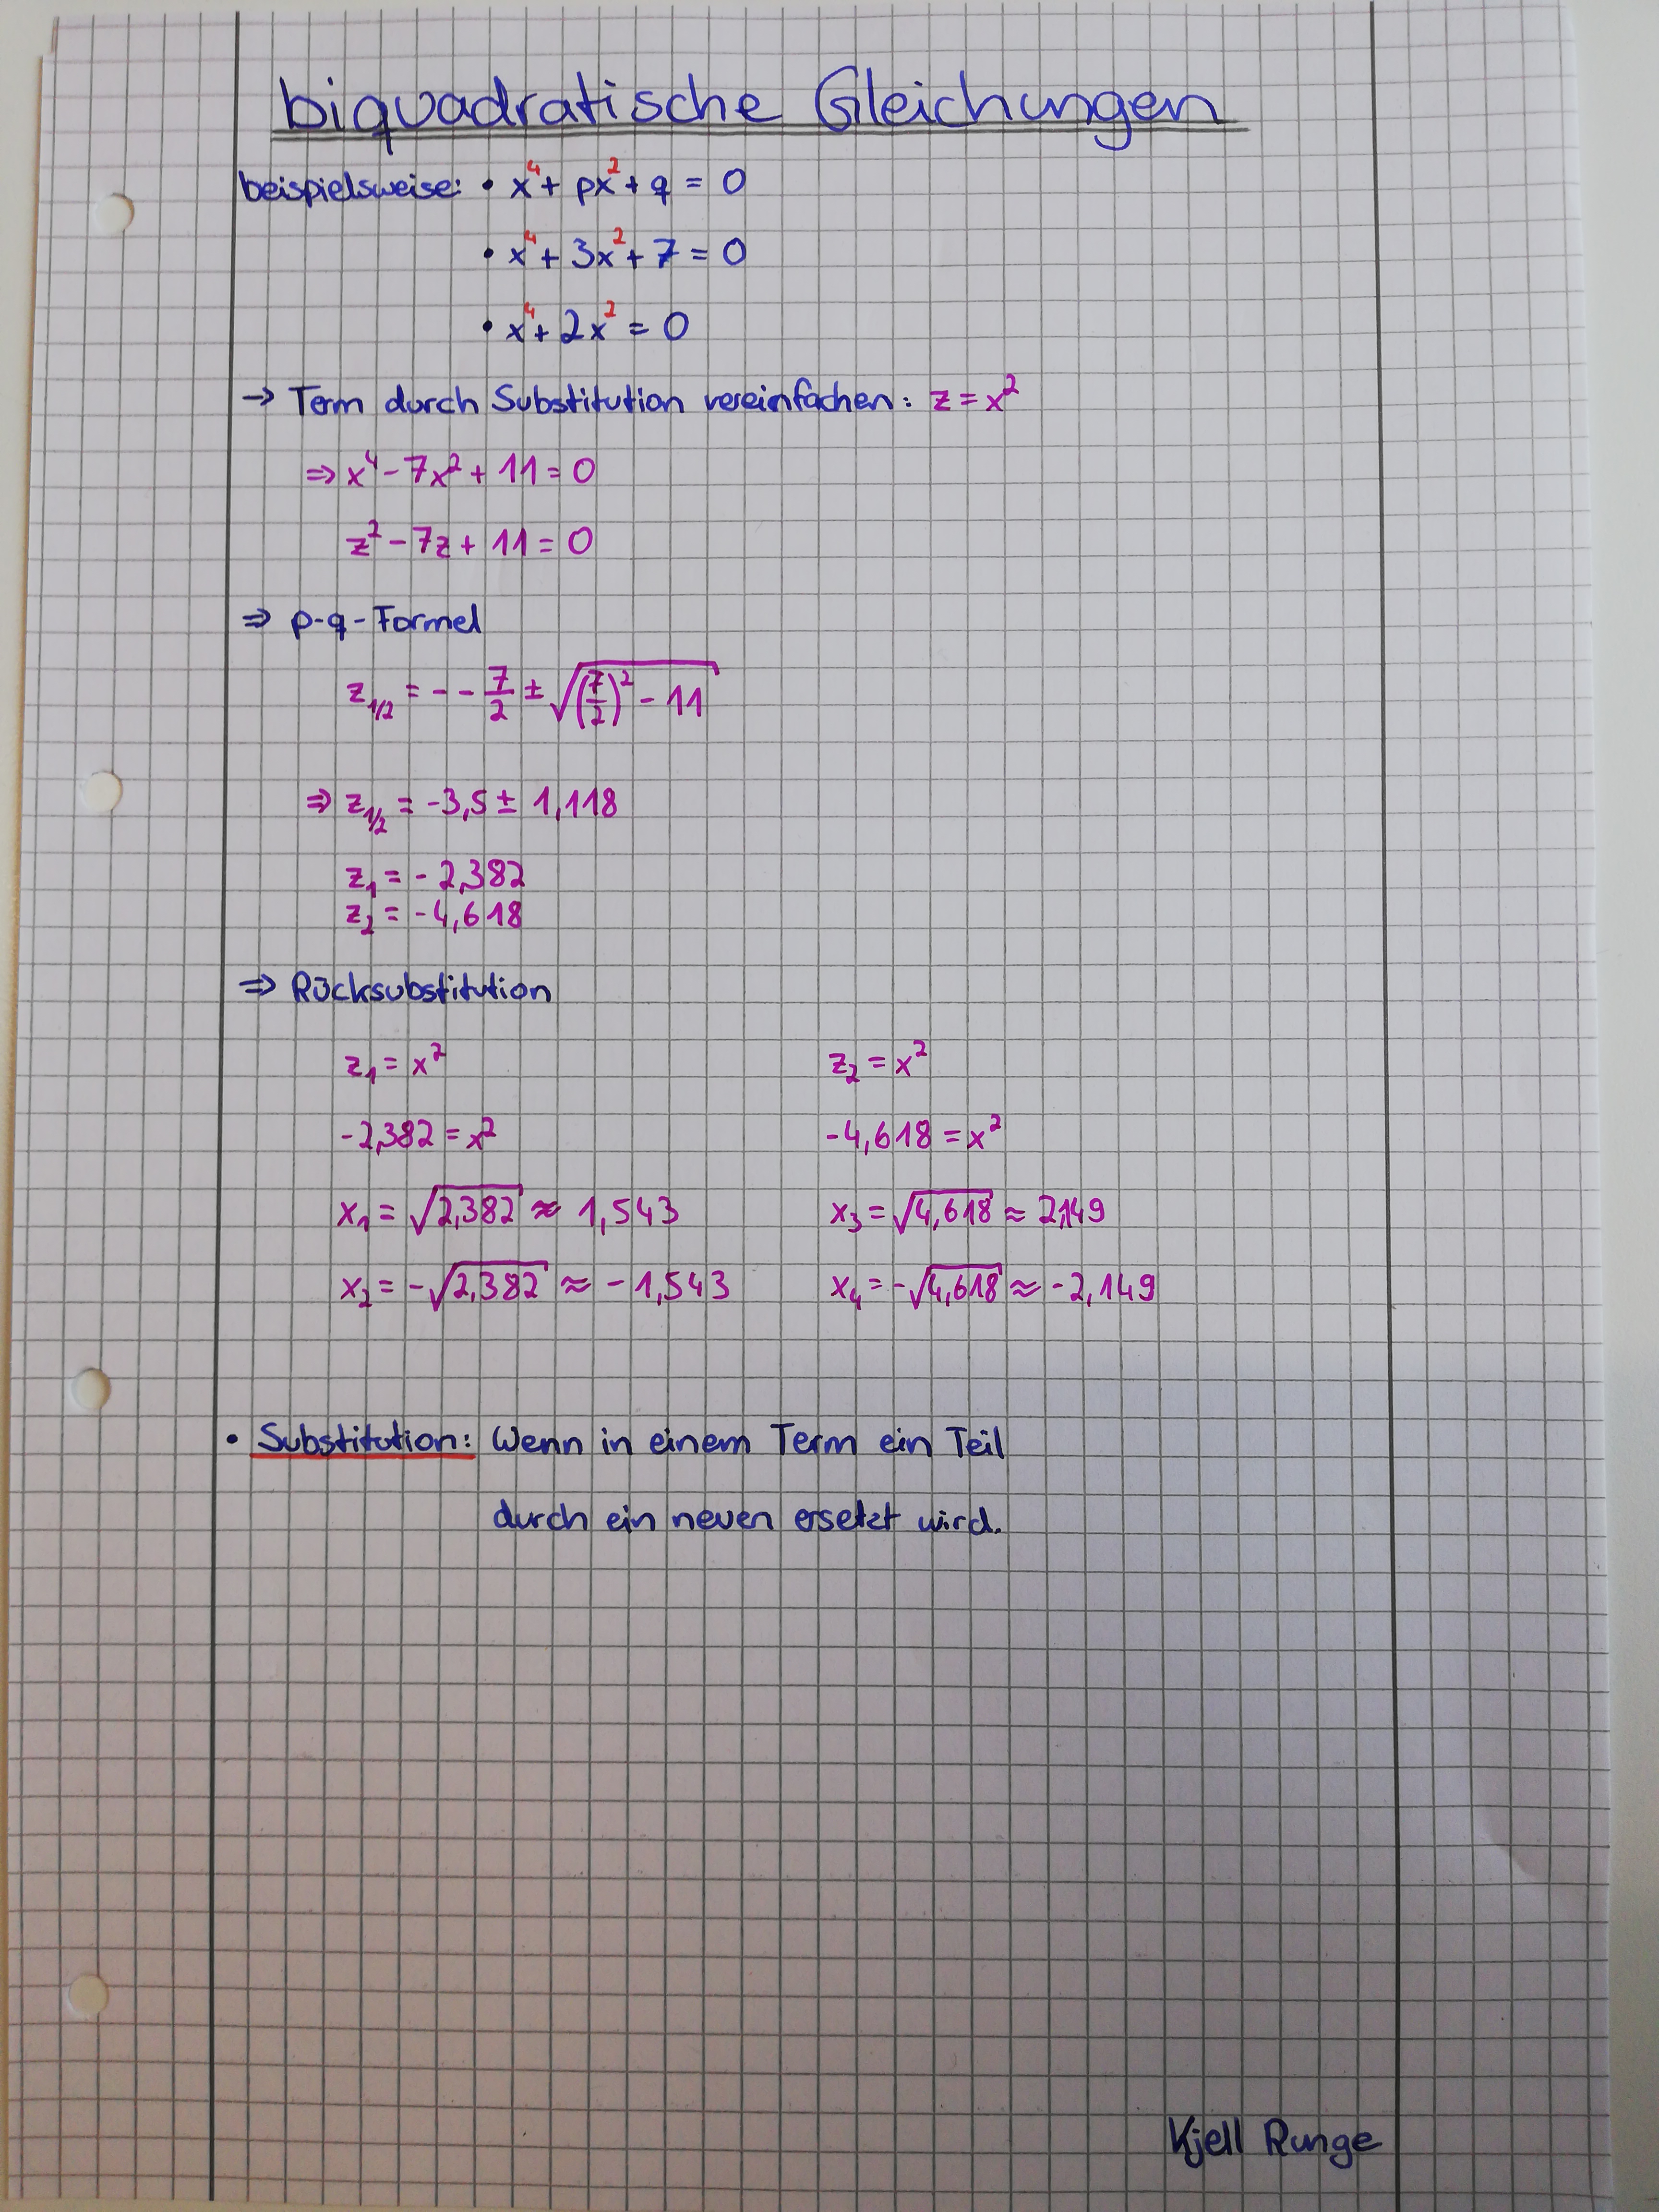 biquadratische Gleichungen
beispielsweise: • x⁴ + px² + q = 0
• x⁴ + 3x² + 7 = 0
• x⁴ + 2x² = 0
→ Term durch Substitution vereinfachen: z = x²
⇒ x⁴ - 7x² + 11 = 0
z² - 7z + 11 = 0
⇒ p-q-Formel
z₁/₂ = - - 7/2 ± √((7/2)² - 11)
⇒ z₁/₂ = -3,5 ± 1,118
z₁ = - 2,382
z₂ = -4,618
⇒ Rücksubstitution
z₁ = x² z₂ = x²
-2,382 = x² -4,618 = x²
x₁ = √2,382 ≈ 1,543 x₃ = √4,618 ≈ 2,149
x₂ = -√2,382 ≈ -1,543 x₄ = -√4,618 ≈ -2,149
• Substitution: Wenn in einem Term ein Teil
durch ein neuen ersetzt wird.
Kjell Runge